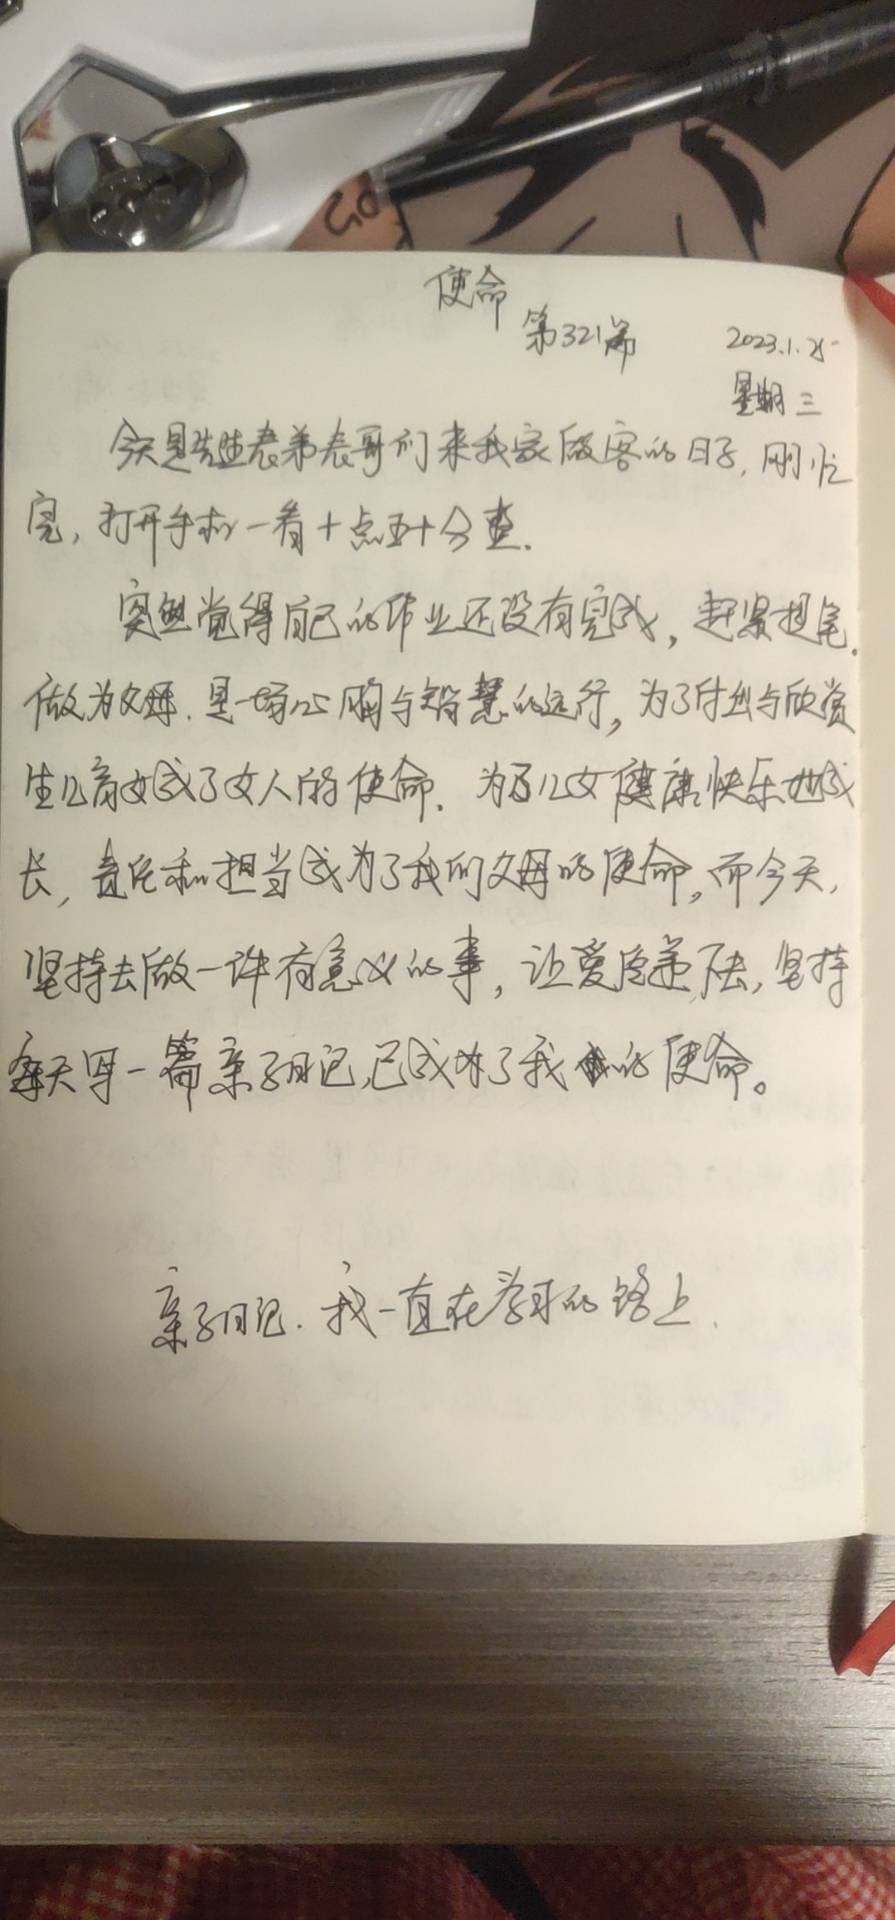 使命
第321篇
2023.1.25
星期三
今天是先生表弟表哥们来我家做客的日子,刚忙
完,打开手机一看十点五十分整.
突然觉得自己的作业还没有完成,赶紧提笔.
做为父母.是一场心胸与智慧的远行,为了付出与欣赏
生儿育女成了女人的使命.为了儿女健康快乐地成
长,责任和担当成为了我们父母的使命,而今天,
坚持去做一许有意义的事,让爱传递下去,坚持
每天写一篇亲子日记,已成为了我的使命。
亲子日记.我一直在学习的路上.